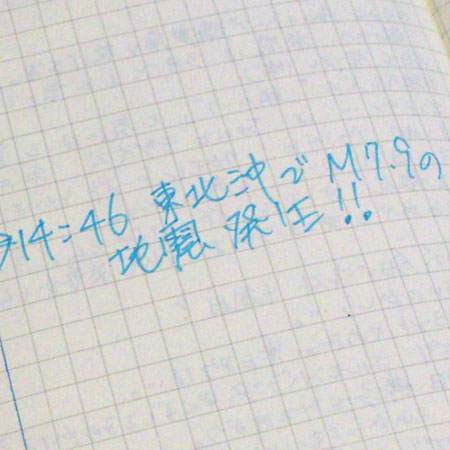 14:46 東北沖で M7.9の
地震発生!!